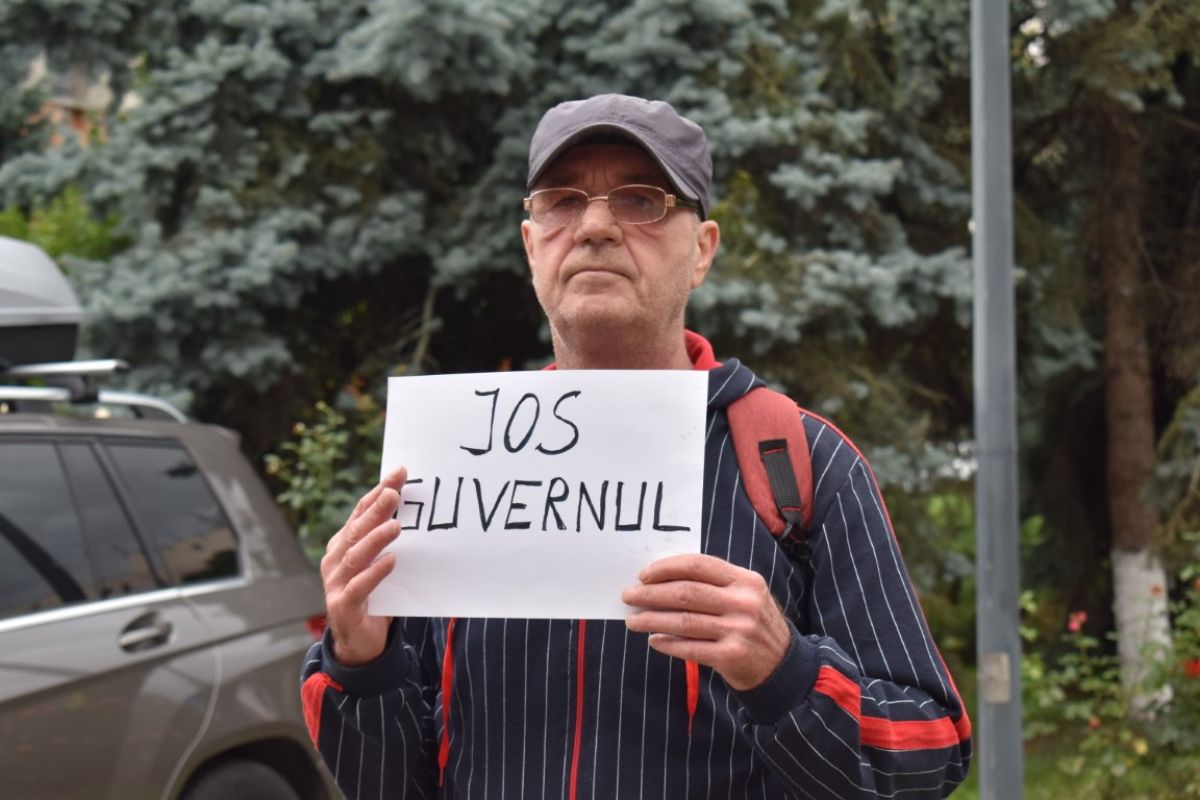 JOS
GUVERNUL